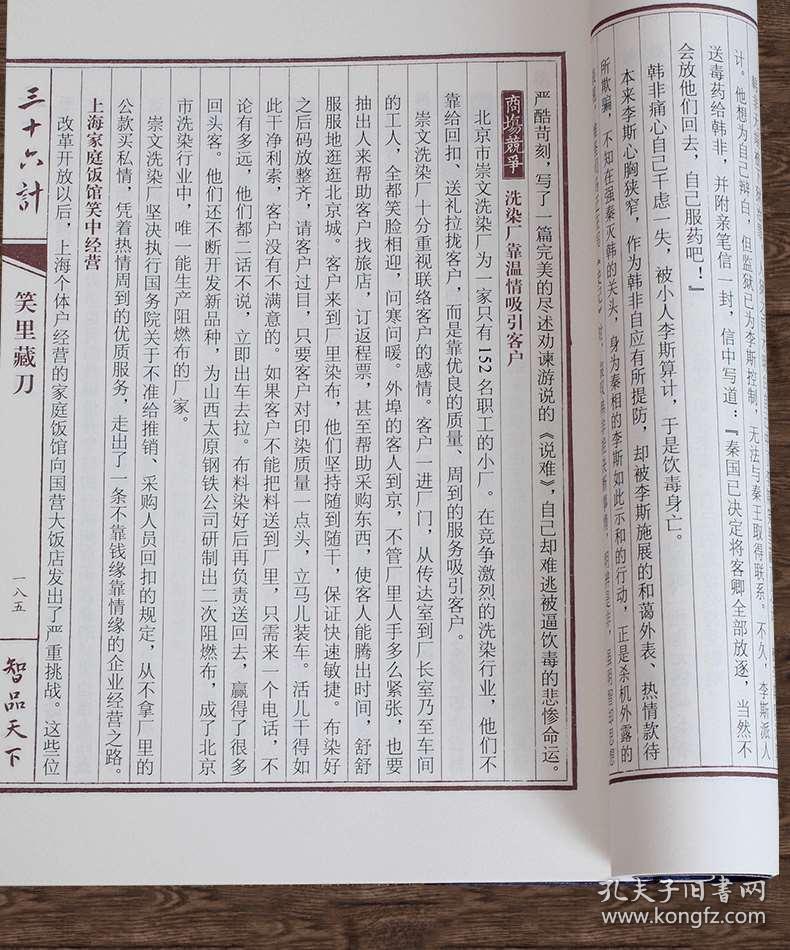 计。他想为自己辩白，但监狱已为李斯控制，无法与秦王取得联系。不久，李斯派人
送毒药给韩非，并附亲笔信一封，信中写道：『秦国已决定将客卿全部放逐，当然不
会放他们回去，自己服药吧！』
韩非痛心自己千虑一失，被小人李斯算计，于是饮毒身亡。
本来李斯心胸狭窄，作为韩非自应有所提防，却被李斯施展的和蔼外表、热情款待
所欺骗，不知在强秦灭韩的关头，身为秦相的李斯如此示和的行动，正是杀机外露的
严酷苛刻，写了一篇完美的尽述劝谏游说的《说难》，自己却难逃被逼饮毒的悲惨命运。
商場競爭 洗染厂靠温情吸引客户
北京市崇文洗染厂为一家只有152名职工的小厂。在竞争激烈的洗染行业，他们不
靠给回扣、送礼拉拢客户，而是靠优良的质量、周到的服务吸引客户。
崇文洗染厂十分重视联络客户的感情。客户一进厂门，从传达室到厂长室乃至车间
的工人，全都笑脸相迎，问寒问暖。外埠的客人到京，不管厂里人手多么紧张，也要
抽出人来帮助客户找旅店，订返程票，甚至帮助采购东西，使客人能腾出时间，舒舒
服服地逛逛北京城。客户来到厂里染布，他们坚持随到随干，保证快速敏捷。布染好
之后码放整齐，请客户过目，只要客户对印染质量一点头，立马儿装车。活儿干得如
此干净利索，客户没有不满意的。如果客户不能把料送到厂里，只需来一个电话，不
论有多远，他们都二话不说，立即出车去拉。布料染好后再负责送回去，赢得了很多
回头客。他们还不断开发新品种，为山西太原钢铁公司研制出二次阻燃布，成了北京
市洗染行业中，唯一能生产阻燃布的厂家。
崇文洗染厂坚决执行国务院关于不准给推销、采购人员回扣的规定，从不拿厂里的
公款买私情，凭着热情周到的优质服务，走出了一条不靠钱缘靠情缘的企业经营之路。
上海家庭饭馆笑中经营
改革开放以后，上海个体户经营的家庭饭馆向国营大饭店发出了严重挑战。这些位
三十六計
笑里藏刀
一八五
智品天下
孔夫子旧书网
www.kongfz.com